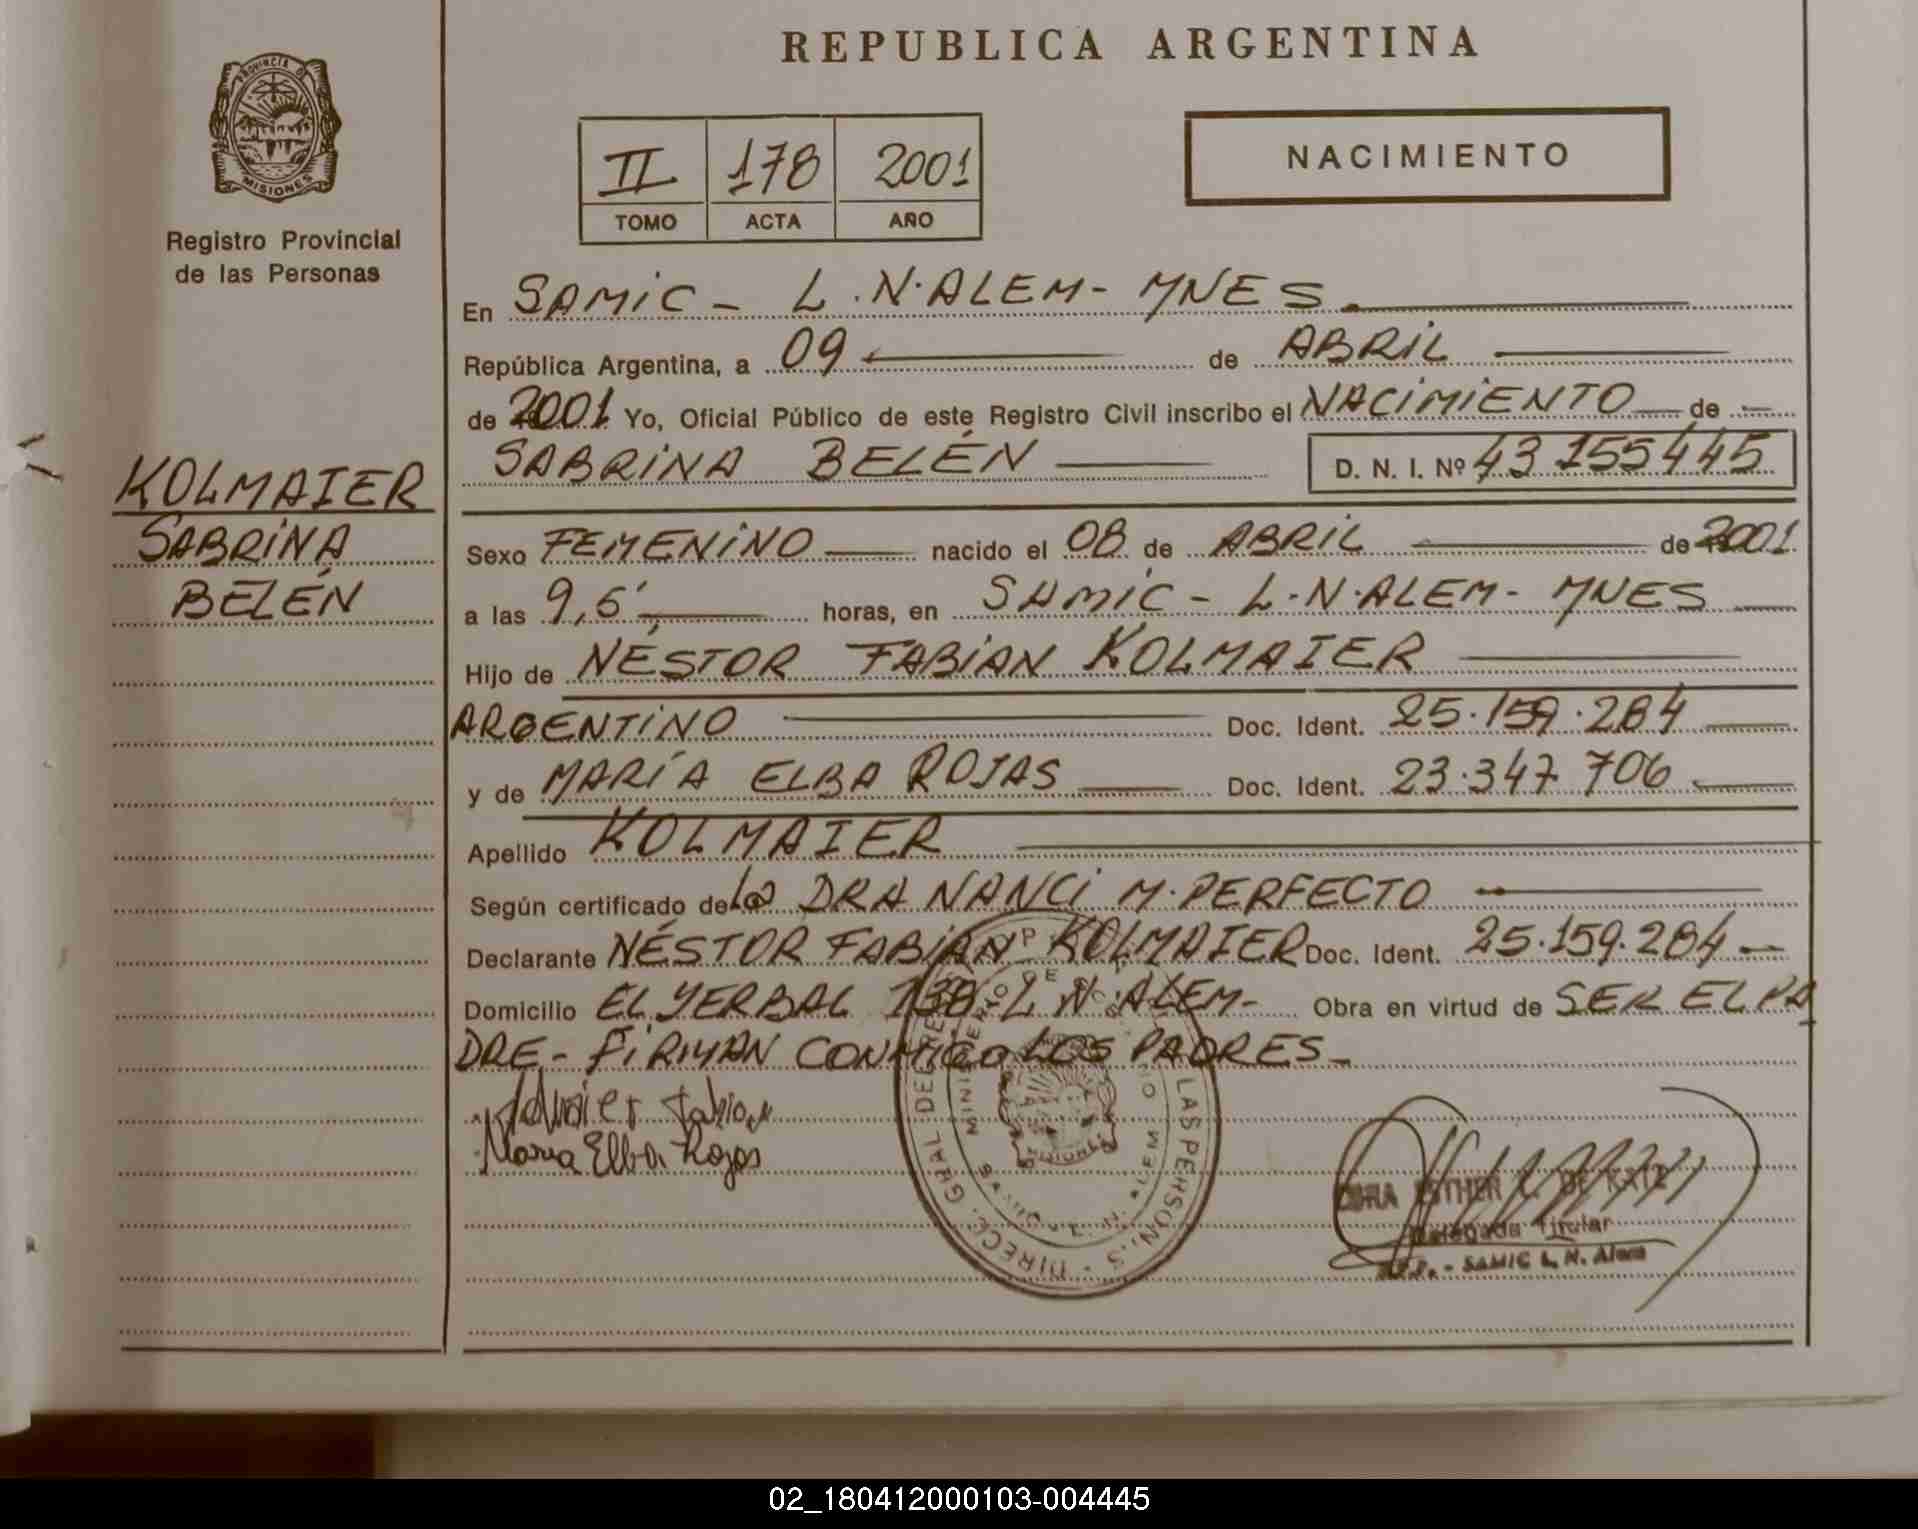 REPUBLICA ARGENTINA
PROVINCIA DE
MISIONES
Registro Provincial
de las Personas
II 178 2001
TOMO ACTA AÑO
NACIMIENTO
En SAMIC - L.N.ALEM - MNES
República Argentina, a 09 de ABRIL
de 2001 Yo, Oficial Público de este Registro Civil inscribo el NACIMIENTO de
SABRINA BELÉN D. N. I. Nº 43 155445
KOLMAIER
SABRINA
BELÉN
Sexo FEMENINO nacido el 08 de ABRIL de 2001
a las 9,5' horas, en SAMIC - L.N.ALEM - MNES
Hijo de NÉSTOR FABIAN KOLMAIER
ARGENTINO Doc. Ident. 25.159.284
y de MARÍA ELBA ROJAS Doc. Ident. 23.347 706
Apellido KOLMAIER
Según certificado de la DRA NANCI M. PERFECTO
Declarante NÉSTOR FABIAN KOLMAIER Doc. Ident. 25.159.284
Domicilio EL YERBAL 138 L N ALEM - Obra en virtud de SER EL PA
DRE - FIRMAN CONMIGO LOS PADRES -
Maria Elba Rojas
ESTHER L. DE KATZ
Delegada Titular
SAMIC L. N. Alem
02_180412000103-004445